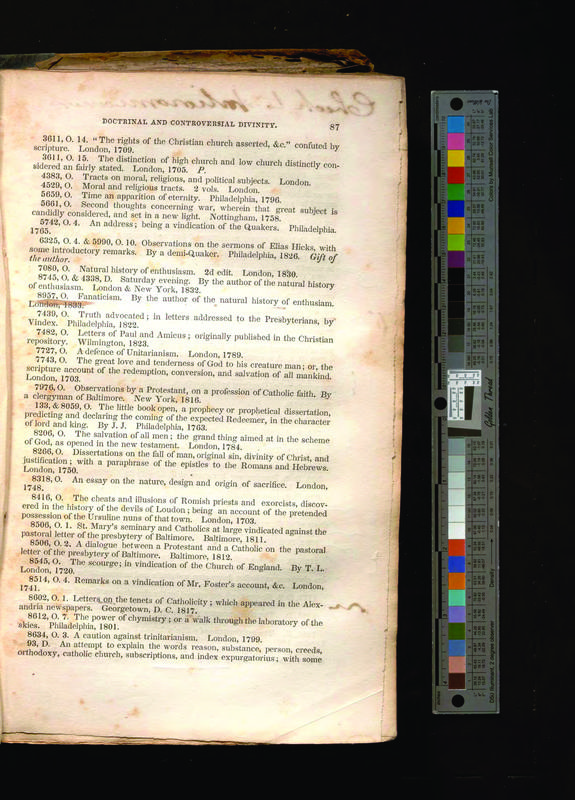 DOCTRINAL AND CONTROVERSIAL DIVINITY. 87
3611, O. 14. "The rights of the Christian church asserted, &c." confuted by
scripture. London, 1709.
3611, O. 15. The distinction of high church and low church distinctly con-
sidered an fairly stated. London, 1705. P.
4383, O. Tracts on moral, religious, and political subjects. London.
4529, O. Moral and religious tracts. 2 vols. London.
5659, O. Time an apparition of eternity. Philadelphia, 1796.
5661, O. Second thoughts concerning war, wherein that great subject is
candidly considered, and set in a new light. Nottingham, 1758.
5742, O. 4. An address; being a vindication of the Quakers. Philadelphia.
1765.
6325, O. 4. & 5990, O. 10. Observations on the sermons of Elias Hicks, with
some introductory remarks. By a demi-Quaker. Philadelphia, 1826. Gift of
the author.
7080, O. Natural history of enthusiasm. 2d edit. London, 1830.
8745, O. & 4338, D. Saturday evening. By the author of the natural history
of enthusiasm. London & New York, 1832.
8957, O. Fanaticism. By the author of the natural history of enthusiam.
London, 1833.
7439, O. Truth advocated; in letters addressed to the Presbyterians, by
Vindex. Philadelphia, 1822.
7482, O. Letters of Paul and Amicus; originally published in the Christian
repository. Wilmington, 1823.
7727, O. A defence of Unitarianism. London, 1789.
7743, O. The great love and tenderness of God to his creature man; or, the
scripture account of the redemption, conversion, and salvation of all mankind.
London, 1703.
7976, O. Observations by a Protestant, on a profession of Catholic faith. By
a clergyman of Baltimore. New York, 1816.
133, & 8059, O. The little book open, a prophecy or prophetical dissertation,
predicting and declaring the coming of the expected Redeemer, in the character
of lord and king. By J. J. Philadelphia, 1763.
8206, O. The salvation of all men; the grand thing aimed at in the scheme
of God, as opened in the new testament. London, 1784.
8266, O. Dissertations on the fall of man, original sin, divinity of Christ, and
justification; with a paraphrase of the epistles to the Romans and Hebrews.
London, 1750.
8318, O. An essay on the nature, design and origin of sacrifice. London,
1748.
8416, O. The cheats and illusions of Romish priests and exorcists, discov-
ered in the history of the devils of Loudun; being an account of the pretended
possession of the Ursuline nuns of that town. London, 1703.
8506, O. 1. St. Mary's seminary and Catholics at large vindicated against the
pastoral letter of the presbytery of Baltimore. Baltimore, 1811.
8506, O. 2. A dialogue between a Protestant and a Catholic on the pastoral
letter of the presbytery of Baltimore. Baltimore, 1812.
8545, O. The scourge; in vindication of the Church of England. By T. L.
London, 1720.
8514, O. 4. Remarks on a vindication of Mr. Foster's account, &c. London,
1741.
8602, O. 1. Letters on the tenets of Catholicity; which appeared in the Alex-
andria newspapers. Georgetown, D. C. 1817.
8612, O. 7. The power of chymistry; or a walk through the laboratory of the
skies. Philadelphia, 1801.
8634, O. 3. A caution against trinitarianism. London, 1799.
93, D. An attempt to explain the words reason, substance, person, creeds,
orthodoxy, catholic church, subscriptions, and index expurgatorius; with some
Golden Thread